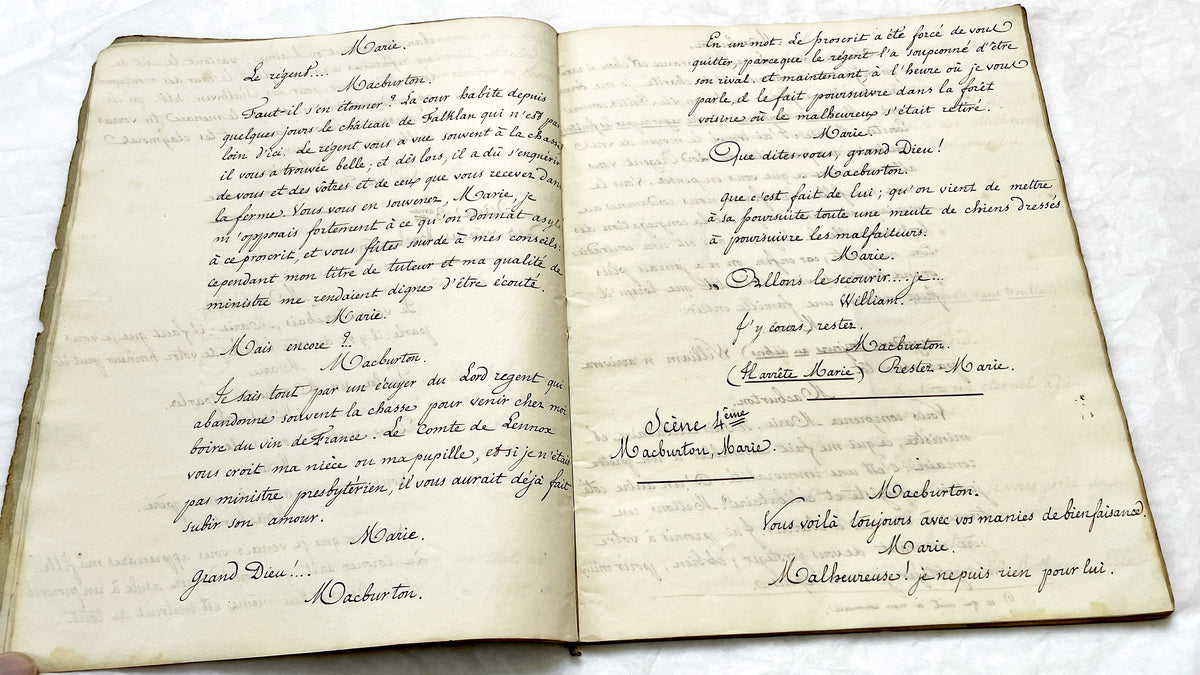 Marie.
Le régent....
Macburton.
Faut-il s'en étonner ? La cour habite depuis
quelques jours le château de Falklan qui n'est pas
loin d'ici. Le régent vous a vue souvent à la chasse
il vous a trouvée belle ; et dès lors, il a dû s'enquérir
de vous et des vôtres et de ceux que vous recevez dans
la ferme. Vous vous en souvenez, Marie, je
m'opposais fortement à ce qu'on donnât asyle
à ce proscrit, et vous fûtes sourde à mes conseils :
cependant mon titre de tuteur et ma qualité de
ministre me rendaient digne d'être écouté.
Marie.
Mais encore ?
Macburton.
Je sais tout par un écuyer du Lord regent qui
abandonne souvent la chasse pour venir chez moi
boire du vin de France. Le Comte de Lennox
vous croit ma nièce ou ma pupille, et si je n'étais
pas ministre presbyterien, il vous aurait déjà fait
subir son amour.
Marie.
Grand Dieu !...
Macburton.
En un mot : Le proscrit a été forcé de vous
quitter, parceque le régent l'a soupconné d'être
son rival. et maintenant, à l'heure où je vous
parle, il le fait poursuivre dans la forêt
voisine où le malheureux s'était retiré.
Marie.
Que dites-vous, grand Dieu !
Macburton.
que c'est fait de lui ; qu'on vient de mettre
à sa poursuite toute une meute de chiens dressés
à poursuivre les malfaiteurs.
Marie.
Allons le secourir.... je...
William.
J'y cours, restez.
Macburton.
(Il arrête Marie) Restez - Marie.
Scène 4ème
Macburton, Marie.
Macburton.
Vous voilà toujours avec vos manies de bienfaisance.
Marie.
Malheureuse ! je ne puis rien pour lui.